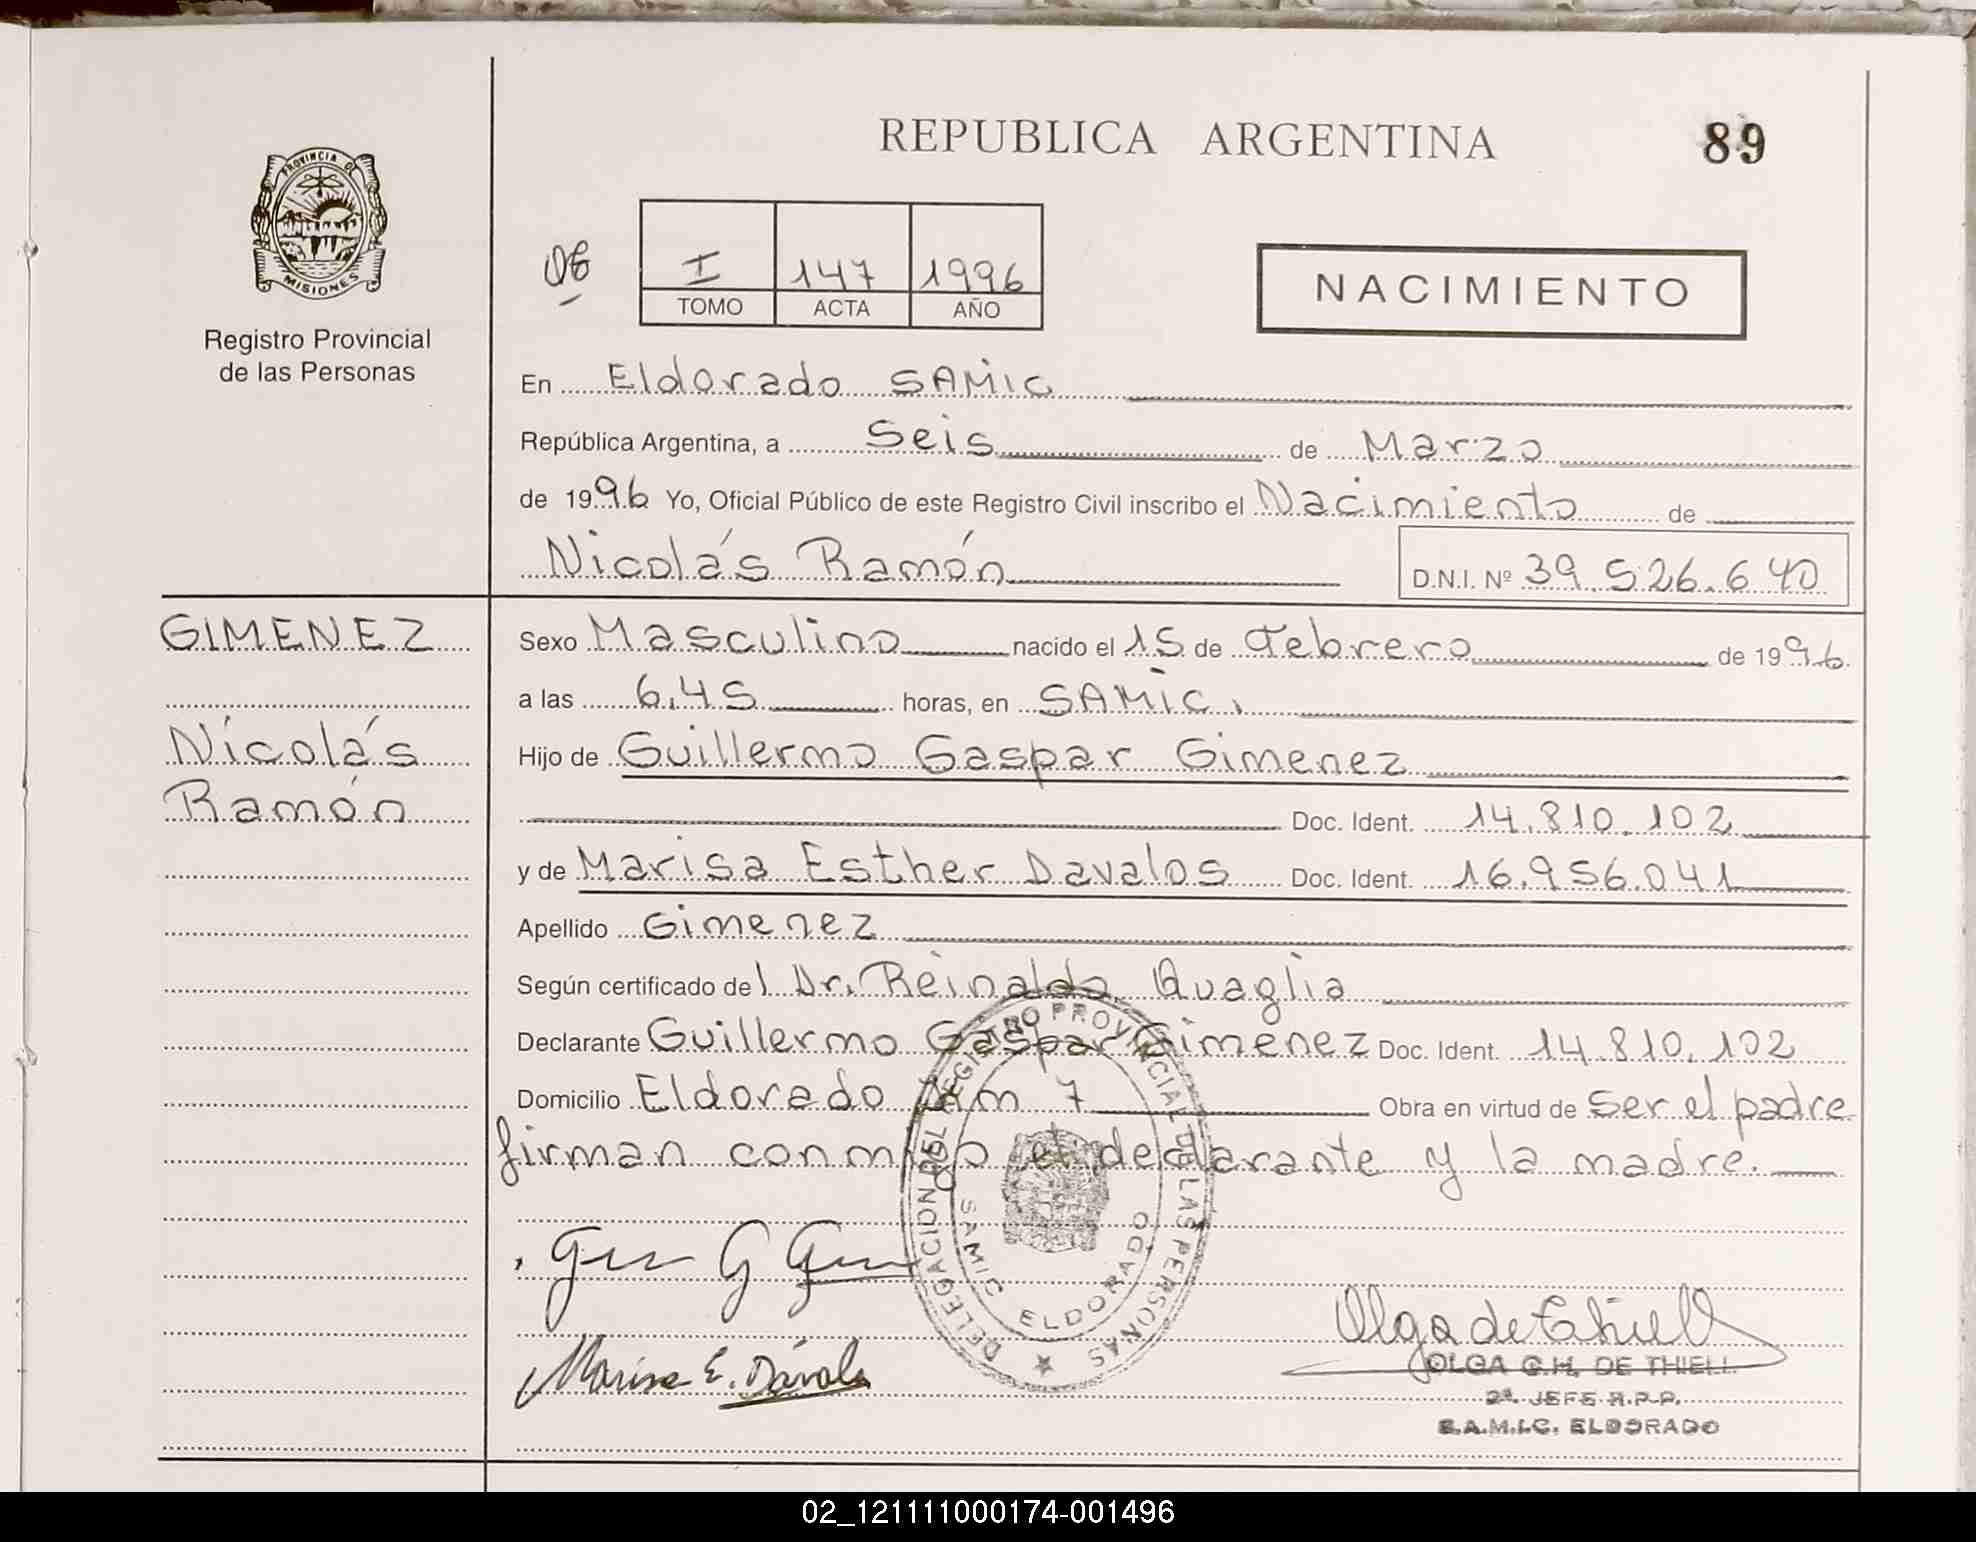 REPUBLICA ARGENTINA
89
PROVINCIA DE
MISIONES
Registro Provincial
de las Personas
I 147 1996
TOMO ACTA AÑO
NACIMIENTO
En Eldorado SAMIC
República Argentina, a Seis de Marzo
de 1996 Yo, Oficial Público de este Registro Civil inscribo el Nacimiento de
Nicolás Ramón
D.N.I. Nº 39.526.640
GIMENEZ
Nicolás
Ramón
Sexo Masculino nacido el 15 de Febrero de 1996
a las 6,45 horas, en SAMIC.
Hijo de Guillermo Gaspar Gimenez
Doc. Ident. 14.810.102
y de Marisa Esther Davalos Doc. Ident. 16.956.041
Apellido Gimenez
Según certificado del Dr. Reinaldo Quaglia
Declarante Guillermo Gaspar Gimenez Doc. Ident. 14.810.102
Domicilio Eldorado Km 7 Obra en virtud de ser el padre
firman conmigo el declarante y la madre.
DELEGACION DEL REGISTRO PROVINCIAL DE LAS PERSONAS
SAMIC ELDORADO
Marisa E. Dávalos
Olga de Thiell
OLGA G.H. DE THIELL
2ª JEFE R.P.P.
S.A.M.I.C. ELDORADO
02_121111000174-001496